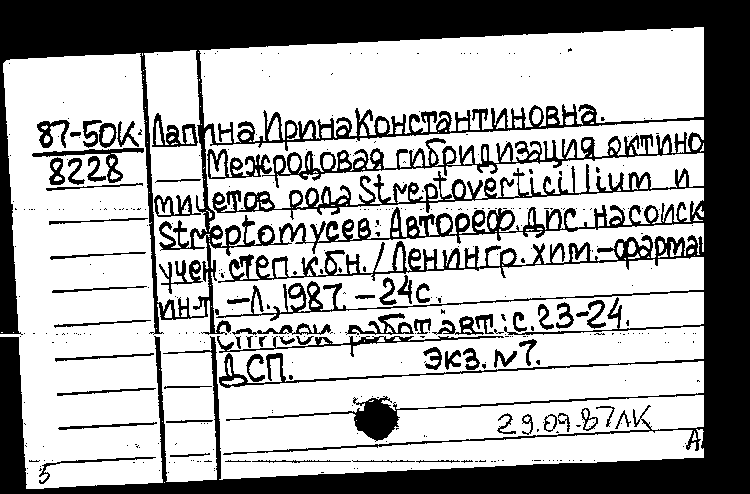 87-50К Лапина, Ирина Константиновна.
8228 Межродовая гибридизация актино
мицетов рода Streptoverticillium и
Streptomyсев: Автореф. дис. на соиск
учен. степ. к.б.н. / Ленингр. хим.-фарма
ин-т. — Л., 1987. — 24с.
Список работ авт.: с. 23-24.
ДСП. Экз. №7.
29.09.87ЛК
5